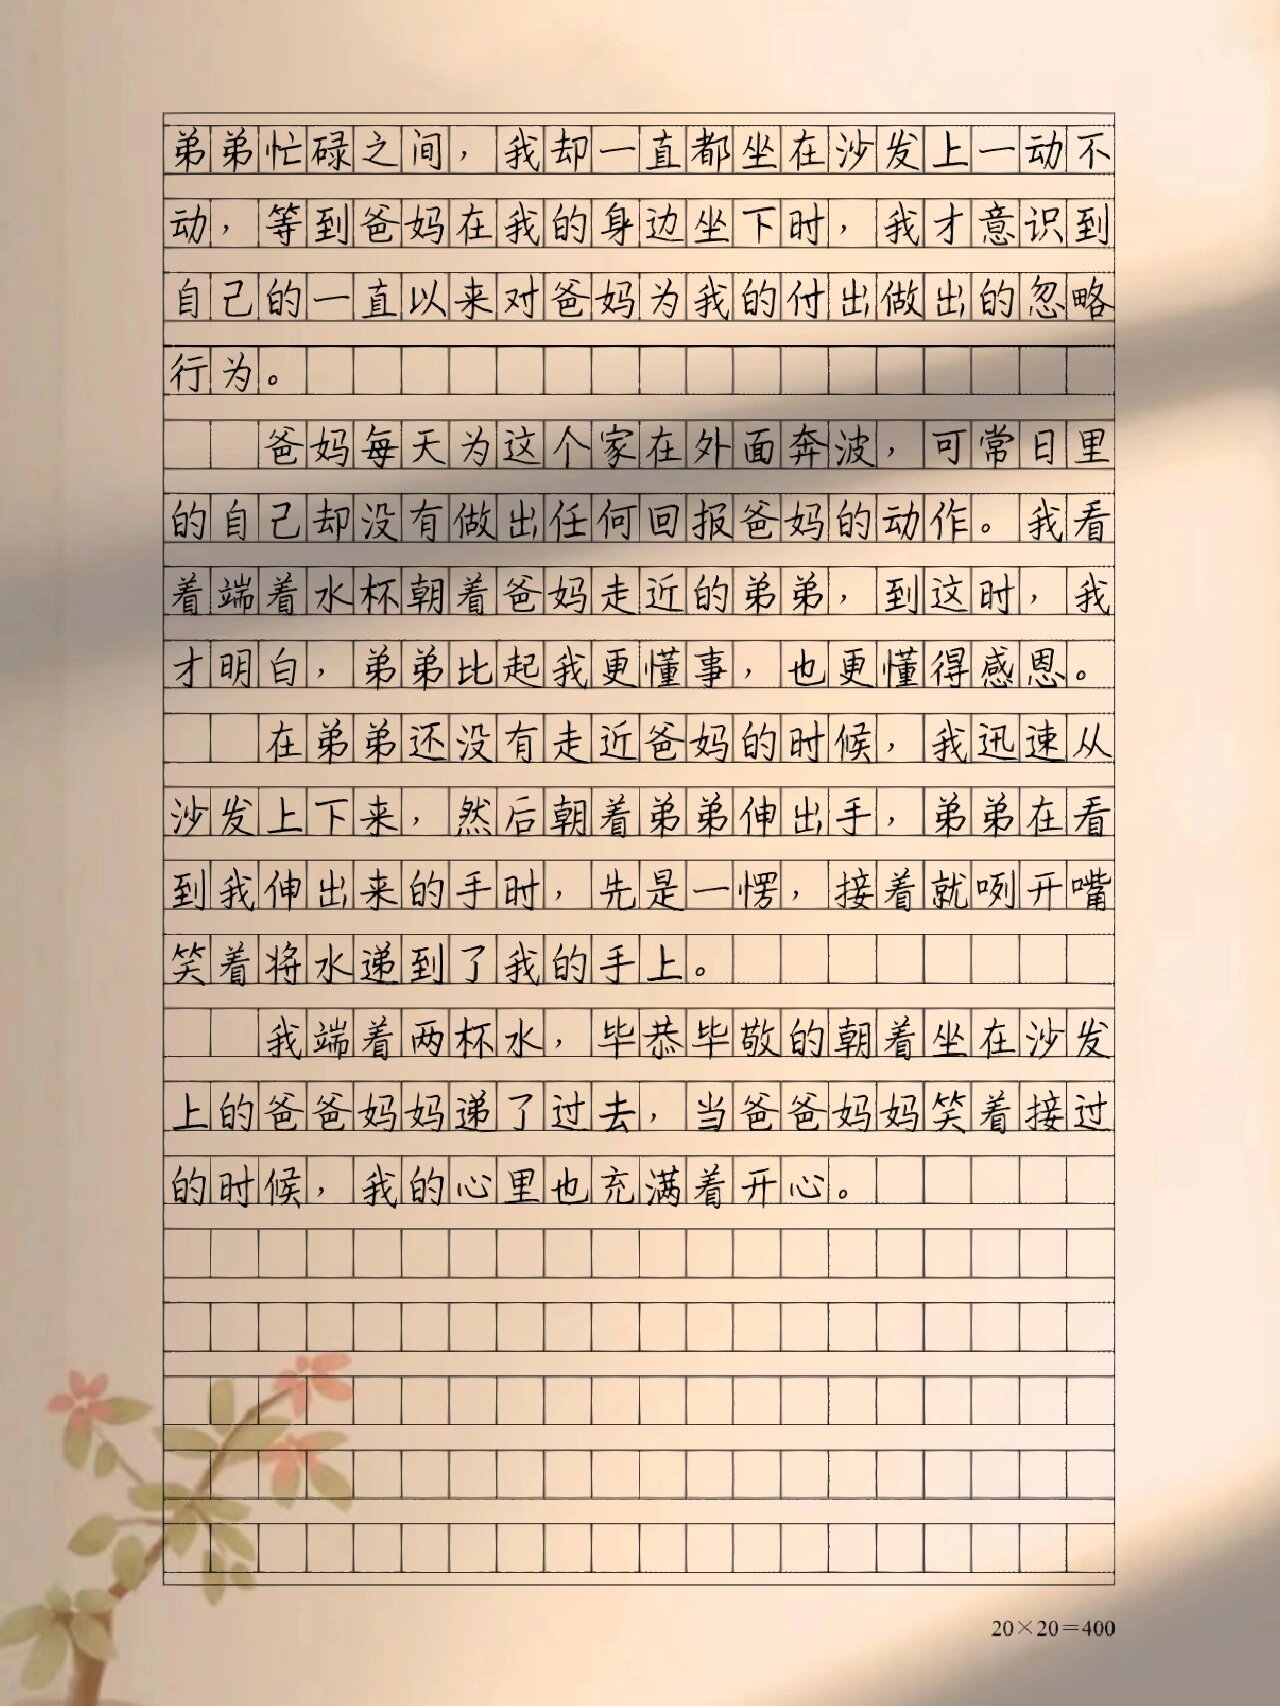 弟弟忙碌之间，我却一直都坐在沙发上一动不
动，等到爸妈在我的身边坐下时，我才意识到
自己的一直以来对爸妈为我的付出做出的忽略
行为。
爸妈每天为这个家在外面奔波，可常日里
的自己却没有做出任何回报爸妈的动作。我看
着端着水杯朝着爸妈走近的弟弟，到这时，我
才明白，弟弟比起我更懂事，也更懂得感恩。
在弟弟还没有走近爸妈的时候，我迅速从
沙发上下来，然后朝着弟弟伸出手，弟弟在看
到我伸出来的手时，先是一愣，接着就咧开嘴
笑着将水递到了我的手上。
我端着两杯水，毕恭毕敬的朝着坐在沙发
上的爸爸妈妈递了过去，当爸爸妈妈笑着接过
的时候，我的心里也充满着开心。
20×20=400